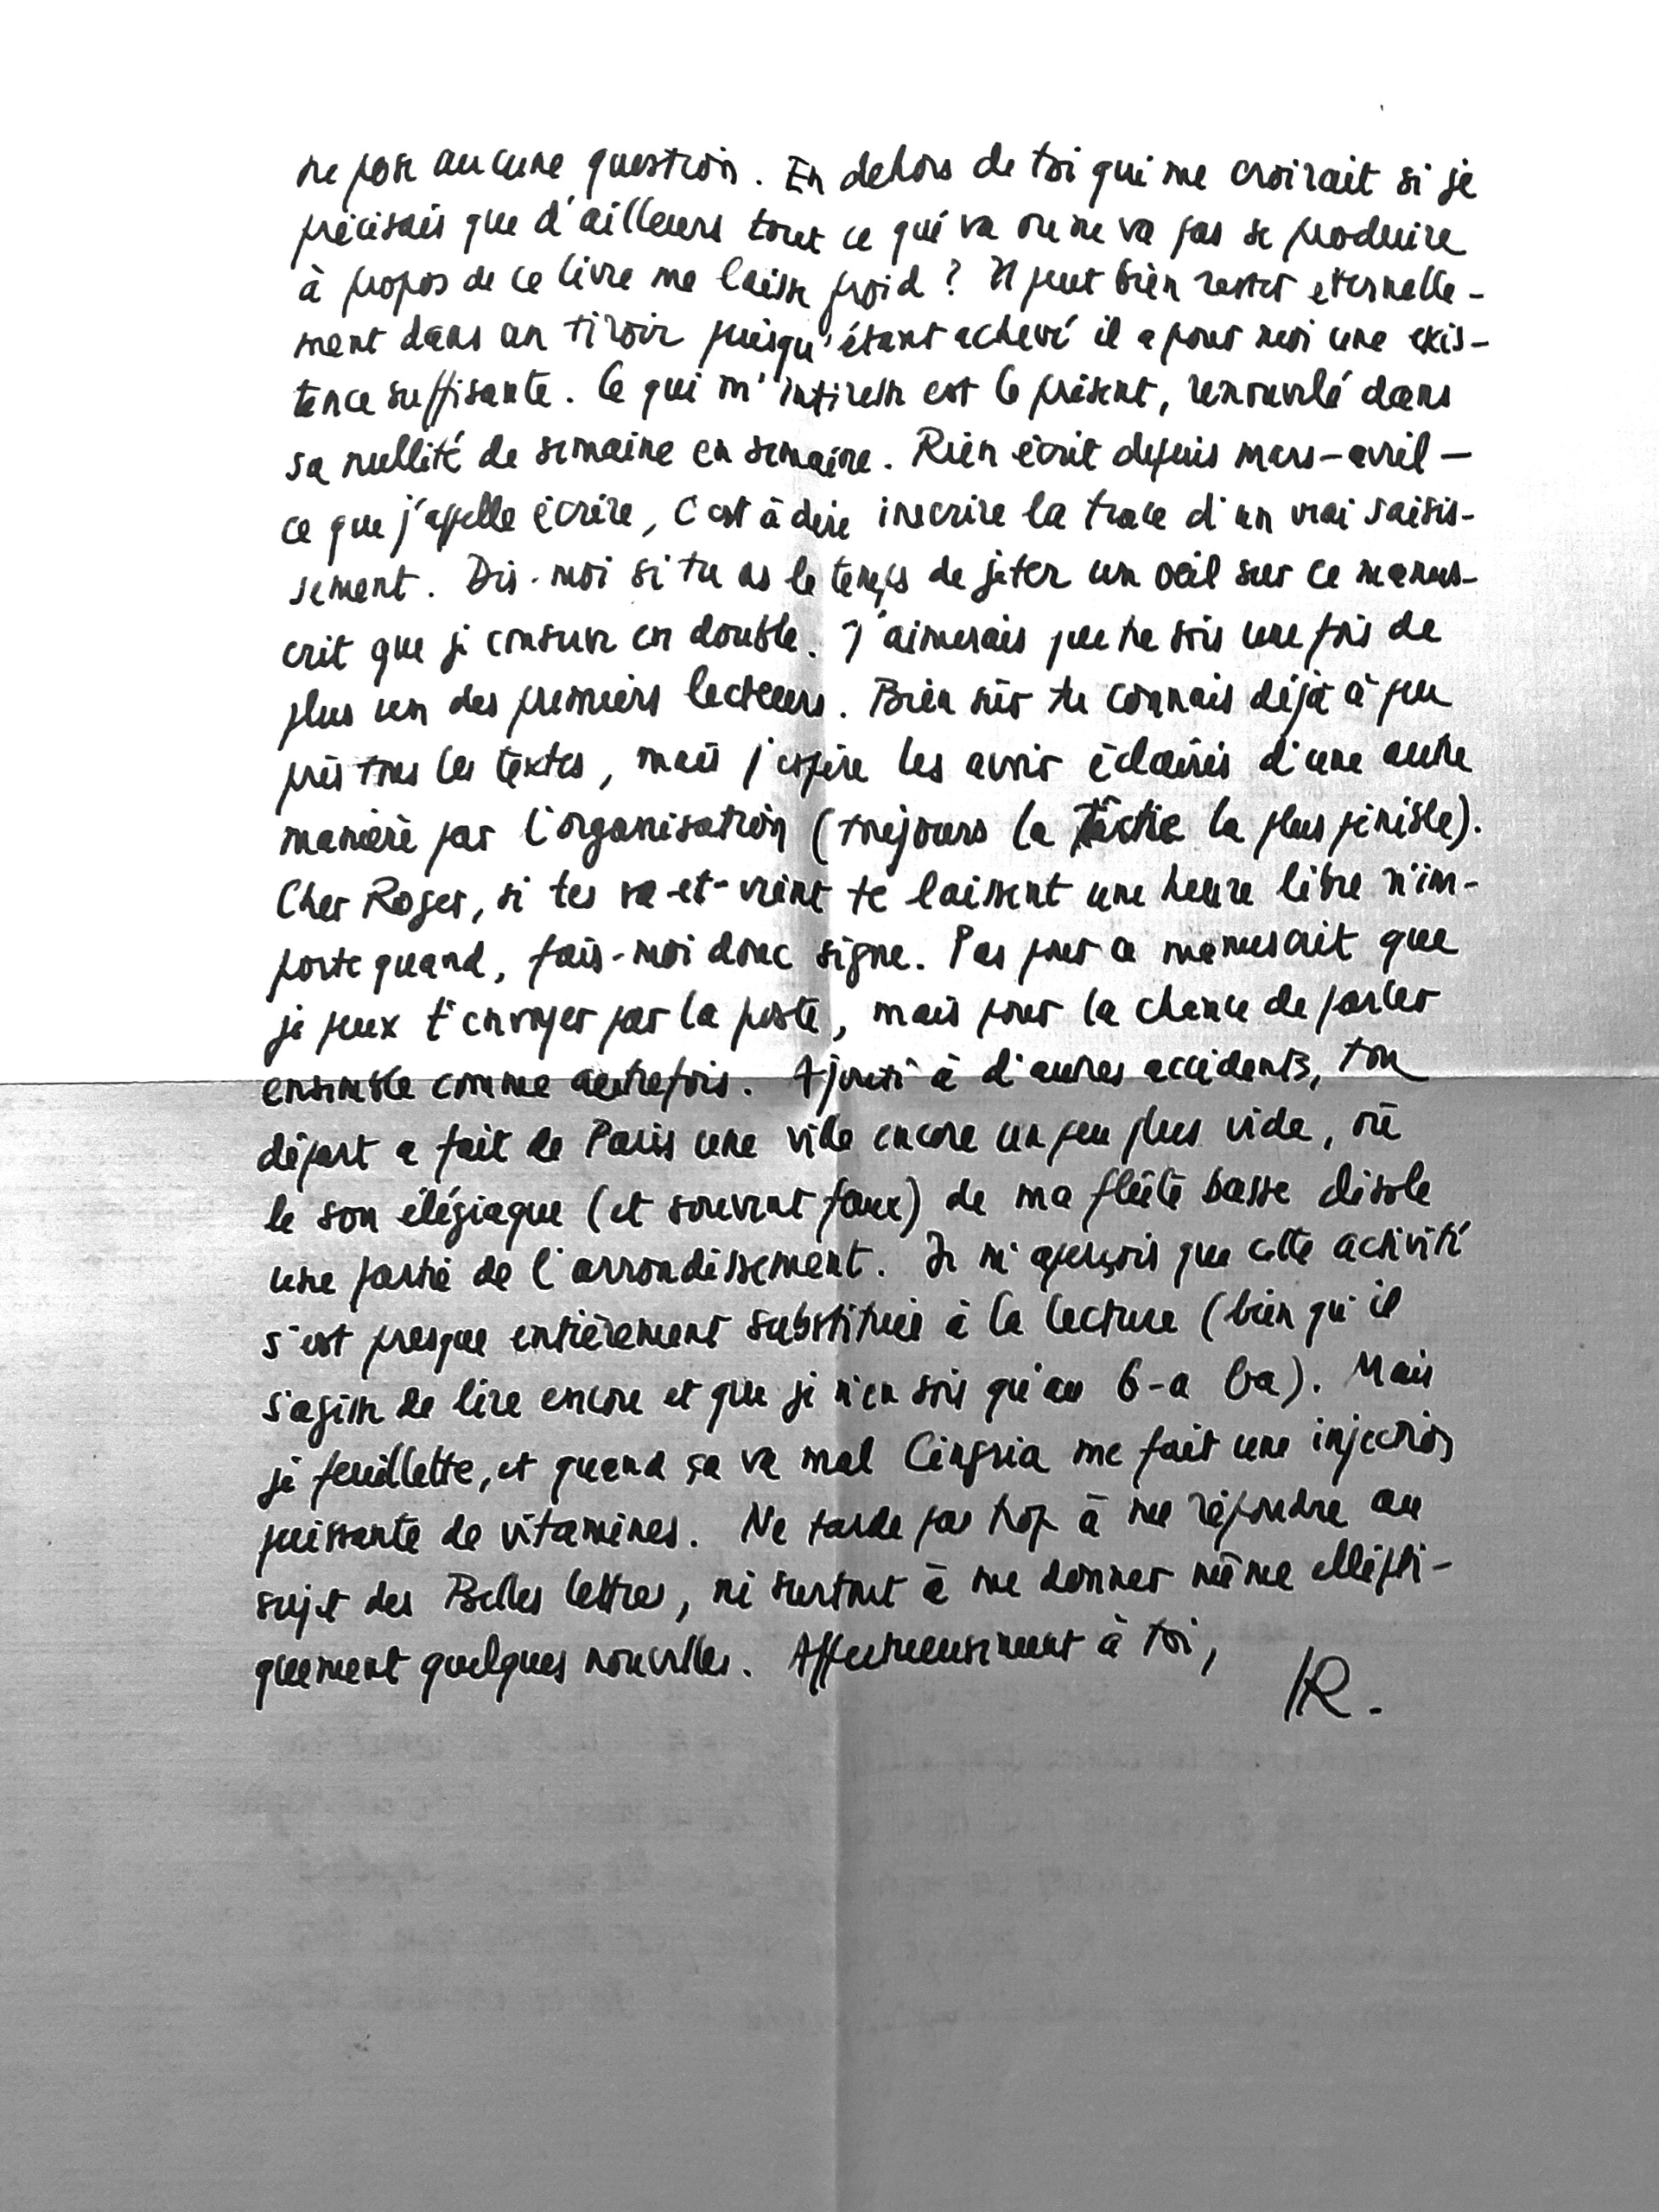 ne pose aucune question. En dehors de toi qui me croirait si je
précisais que d'ailleurs tout ce qui va ou ne va pas se produire
à propos de ce livre me laisse froid ? Il peut bien rester éternelle-
ment dans un tiroir puisqu'étant achevé il a pour moi une exis-
tence suffisante. Ce qui m'intéresse est le présent, renouvelé dans
sa nullité de semaine en semaine. Rien écrit depuis mars-avril —
ce que j'appelle écrire, c'est à dire inscrire la trace d'un vrai saisis-
sement. Dis-moi si tu as le temps de jeter un oeil sur ce manus-
crit que je conserve en double. J'aimerais que tu sois une fois de
plus un des premiers lecteurs. Bien sûr tu connais déjà à peu
près tous les textes, mais j'espère les avoir éclairés d'une autre
manière par l'organisation (toujours la tâche la plus pénible).
Cher Roger, si tes va-et-vient te laissent une heure libre n'im-
porte quand, fais-moi donc signe. Pas pour ce manuscrit que
je peux t'envoyer par la poste, mais pour la chance de parler
ensemble comme autrefois. Ajouté à d'autres accidents, ton
départ a fait de Paris une ville encore un peu plus vide, où
le son élégiaque (et souvent faux) de ma flûte basse désole
une partie de l'arrondissement. Je m'aperçois que cette activité
s'est presque entièrement substituée à la lecture (bien qu'il
s'agisse de lire encore et que je n'en sois qu'au b-a ba). Mais
je feuillette, et quand ça va mal Cingria me fait une injection
puissante de vitamines. Ne tarde pas trop à me répondre au
sujet des Belles lettres, ni surtout à me donner même ellipti-
quement quelques nouvelles. Affectueusement à toi,
R.